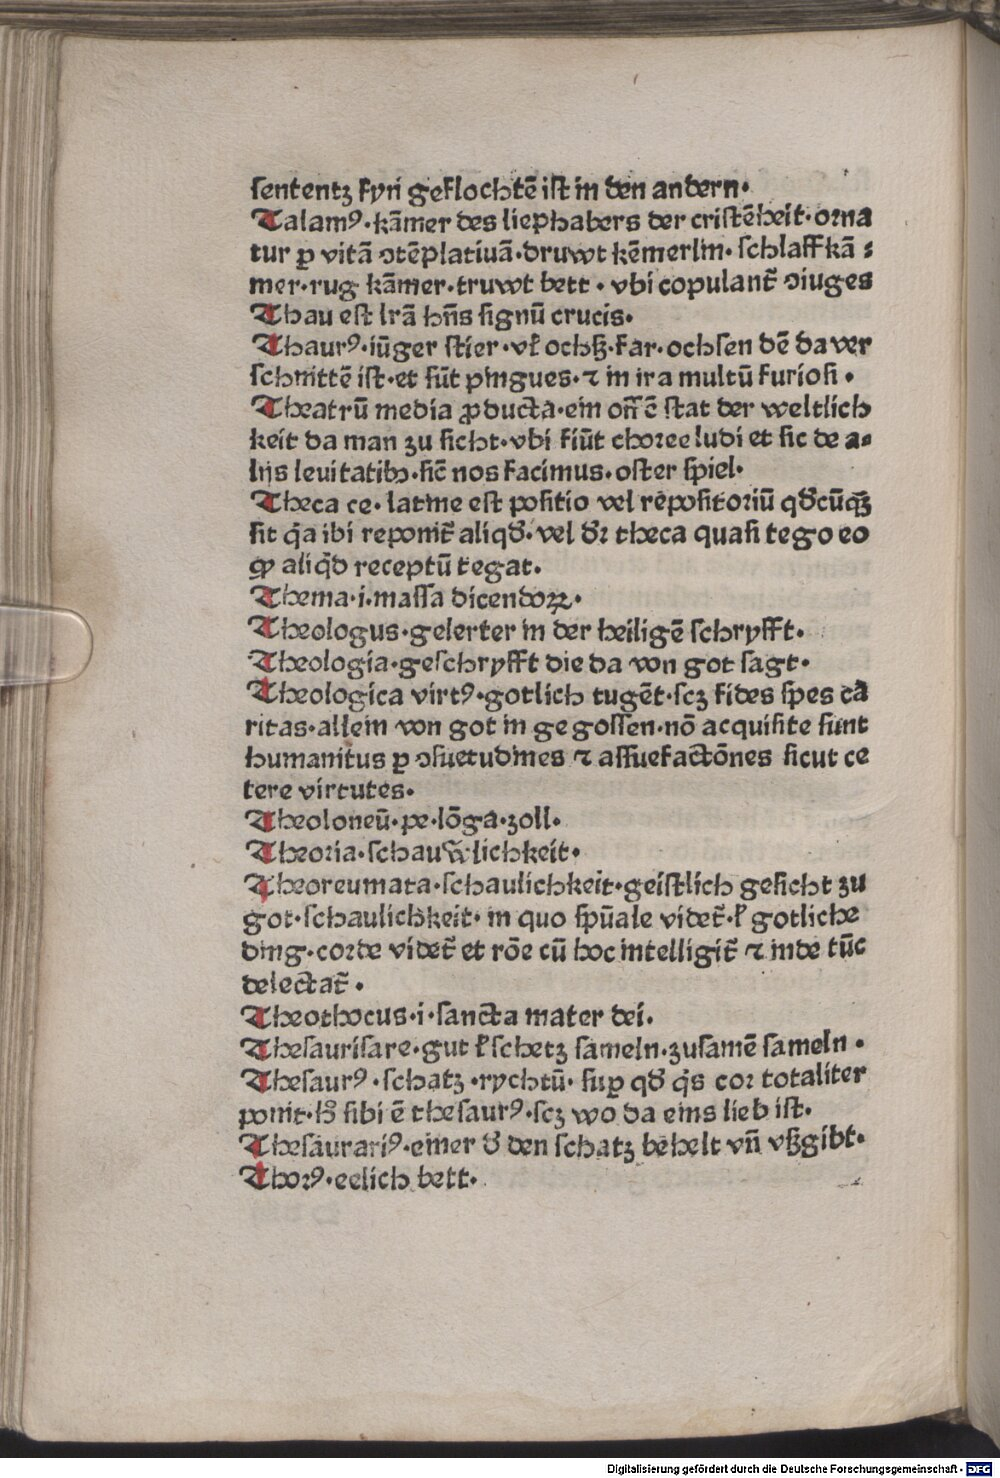 sententz fyn geflochtē ist in den andern.
Talamꝰ.kāmer des liephabers der cristēheit.orna
tur ꝑ vitā ↄtēplatiuā.druwt kēmerlin.schlaffkā⸗
mer.rug kāmer.truwt bett.vbi copulant̃ ↄiuges
Thau est lr̄a hn̄s signū crucis.
Thaurꝰ.iūger stier.vl̕ ochß.far.ochsen dē da ver
schnittē ist.et sūt pingues.⁊ in ira multū furiosi.
Theatrū media ꝓducta.ein off̄e stat der weltlich
keit da man zu sicht.vbi fiūt choree ludi et sic de a⸗
lijs leuitatibꝫ.sic̄ nos facimus.oster spiel.
Theca ce.latine est positio vel repositoriū qd̕cūqꝫ
sit q̄a ibi reponit̃ aliqd̕.vel dr̕ theca quasi tego eo
ꝙ aliq̄d receptū tegat.
Thema.i.massa dicendoꝝ.
Theologus.gelerter in der heiligē schryfft.
Theologia.geschryfft die da von got sagt.
Theologica virtꝰ.gotlich tugēt.scꝫ fides spes ca
ritas.allein von got in gegossen.nō acquisite sunt
humanitus ꝑ ↄsuetudines ⁊ assuefactōnes sicut ce
tere virtutes.
Theoloneū.pe.lōga.zoll.
Theoria.schauẘlichkeit.
Theoreumata.schaulichkeit.geistlich gesicht zu
got.schaulichkeit.in quo sp̄uale videt̃.l̕ gotliche
ding.corde videt̃ et rōe cū hoc intelligit̃ ⁊ inde tūc
delectat̃.
Theothocus.i.sancta mater dei.
Thesaurisare.gut l̕ schetz sameln.zusamē sameln.
Thesaurꝰ.schatz.rychtū.suꝑ qd̕ q̄s cor totaliter
ponit.h̕ sibi ē thesaurꝰ.scꝫ wo da eins lieb ist.
Thesaurariꝰ.einer d̕ den schatz behelt vn̄ vßgibt.
Thorꝰ.eelich bett.
Digitalisierung gefördert durch die Deutsche Forschungsgemeinschaft - DFG